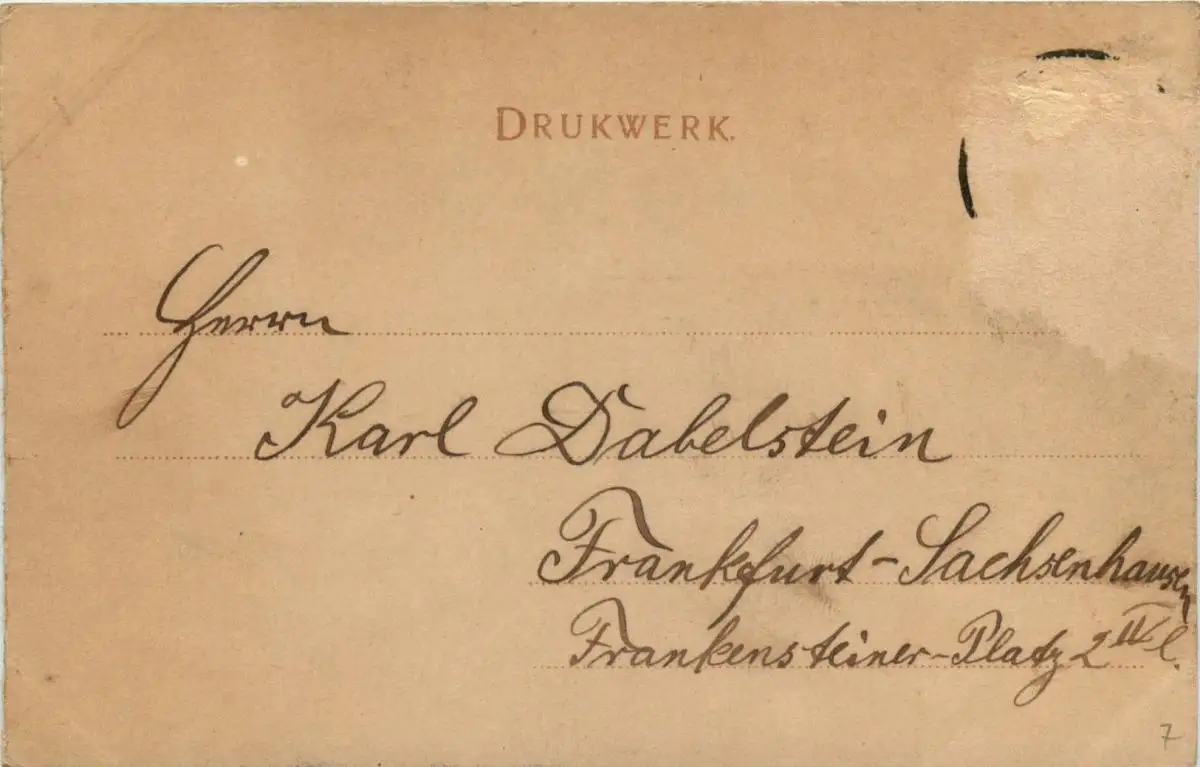 DRUKWERK.
Herrn
Karl Dabelstein
Frankfurt-Sachsenhausen
Frankensteiner-Platz 2 II l.
7